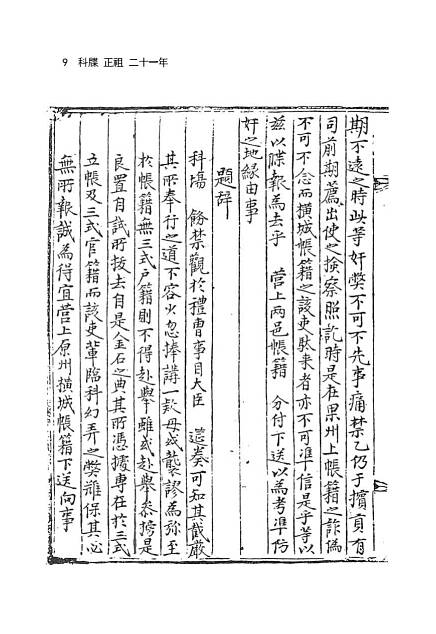 9 科牒 正祖 二十一年
期不遠之時此等奸弊不可不先事痛禁乙仍于擯頁有
司前期薦出使之撿察照訖時是在果州上帳籍之詐僞
不可不念而橫城帳籍之該吏馱来者亦不可準信是乎等以
玆以牒報爲去乎 營上兩邑帳籍 分付下送以爲考準防
奸之地緣由事
題辞
科場 餙禁觀於禮曹事目大臣 筵奏可知其截嚴
其所奉行之道不容火忽捧講一欵毋或襲謬爲㫆至
於帳籍無三式戶籍則不得赴擧雖或赴擧叅榜是
良置自試所拔去自是金石之典其所憑據專在於三式
立帳及三式官籍而該吏軰臨科幻弄之弊難保其必
無所報誠爲得宜營上原州橫城帳籍下送向事